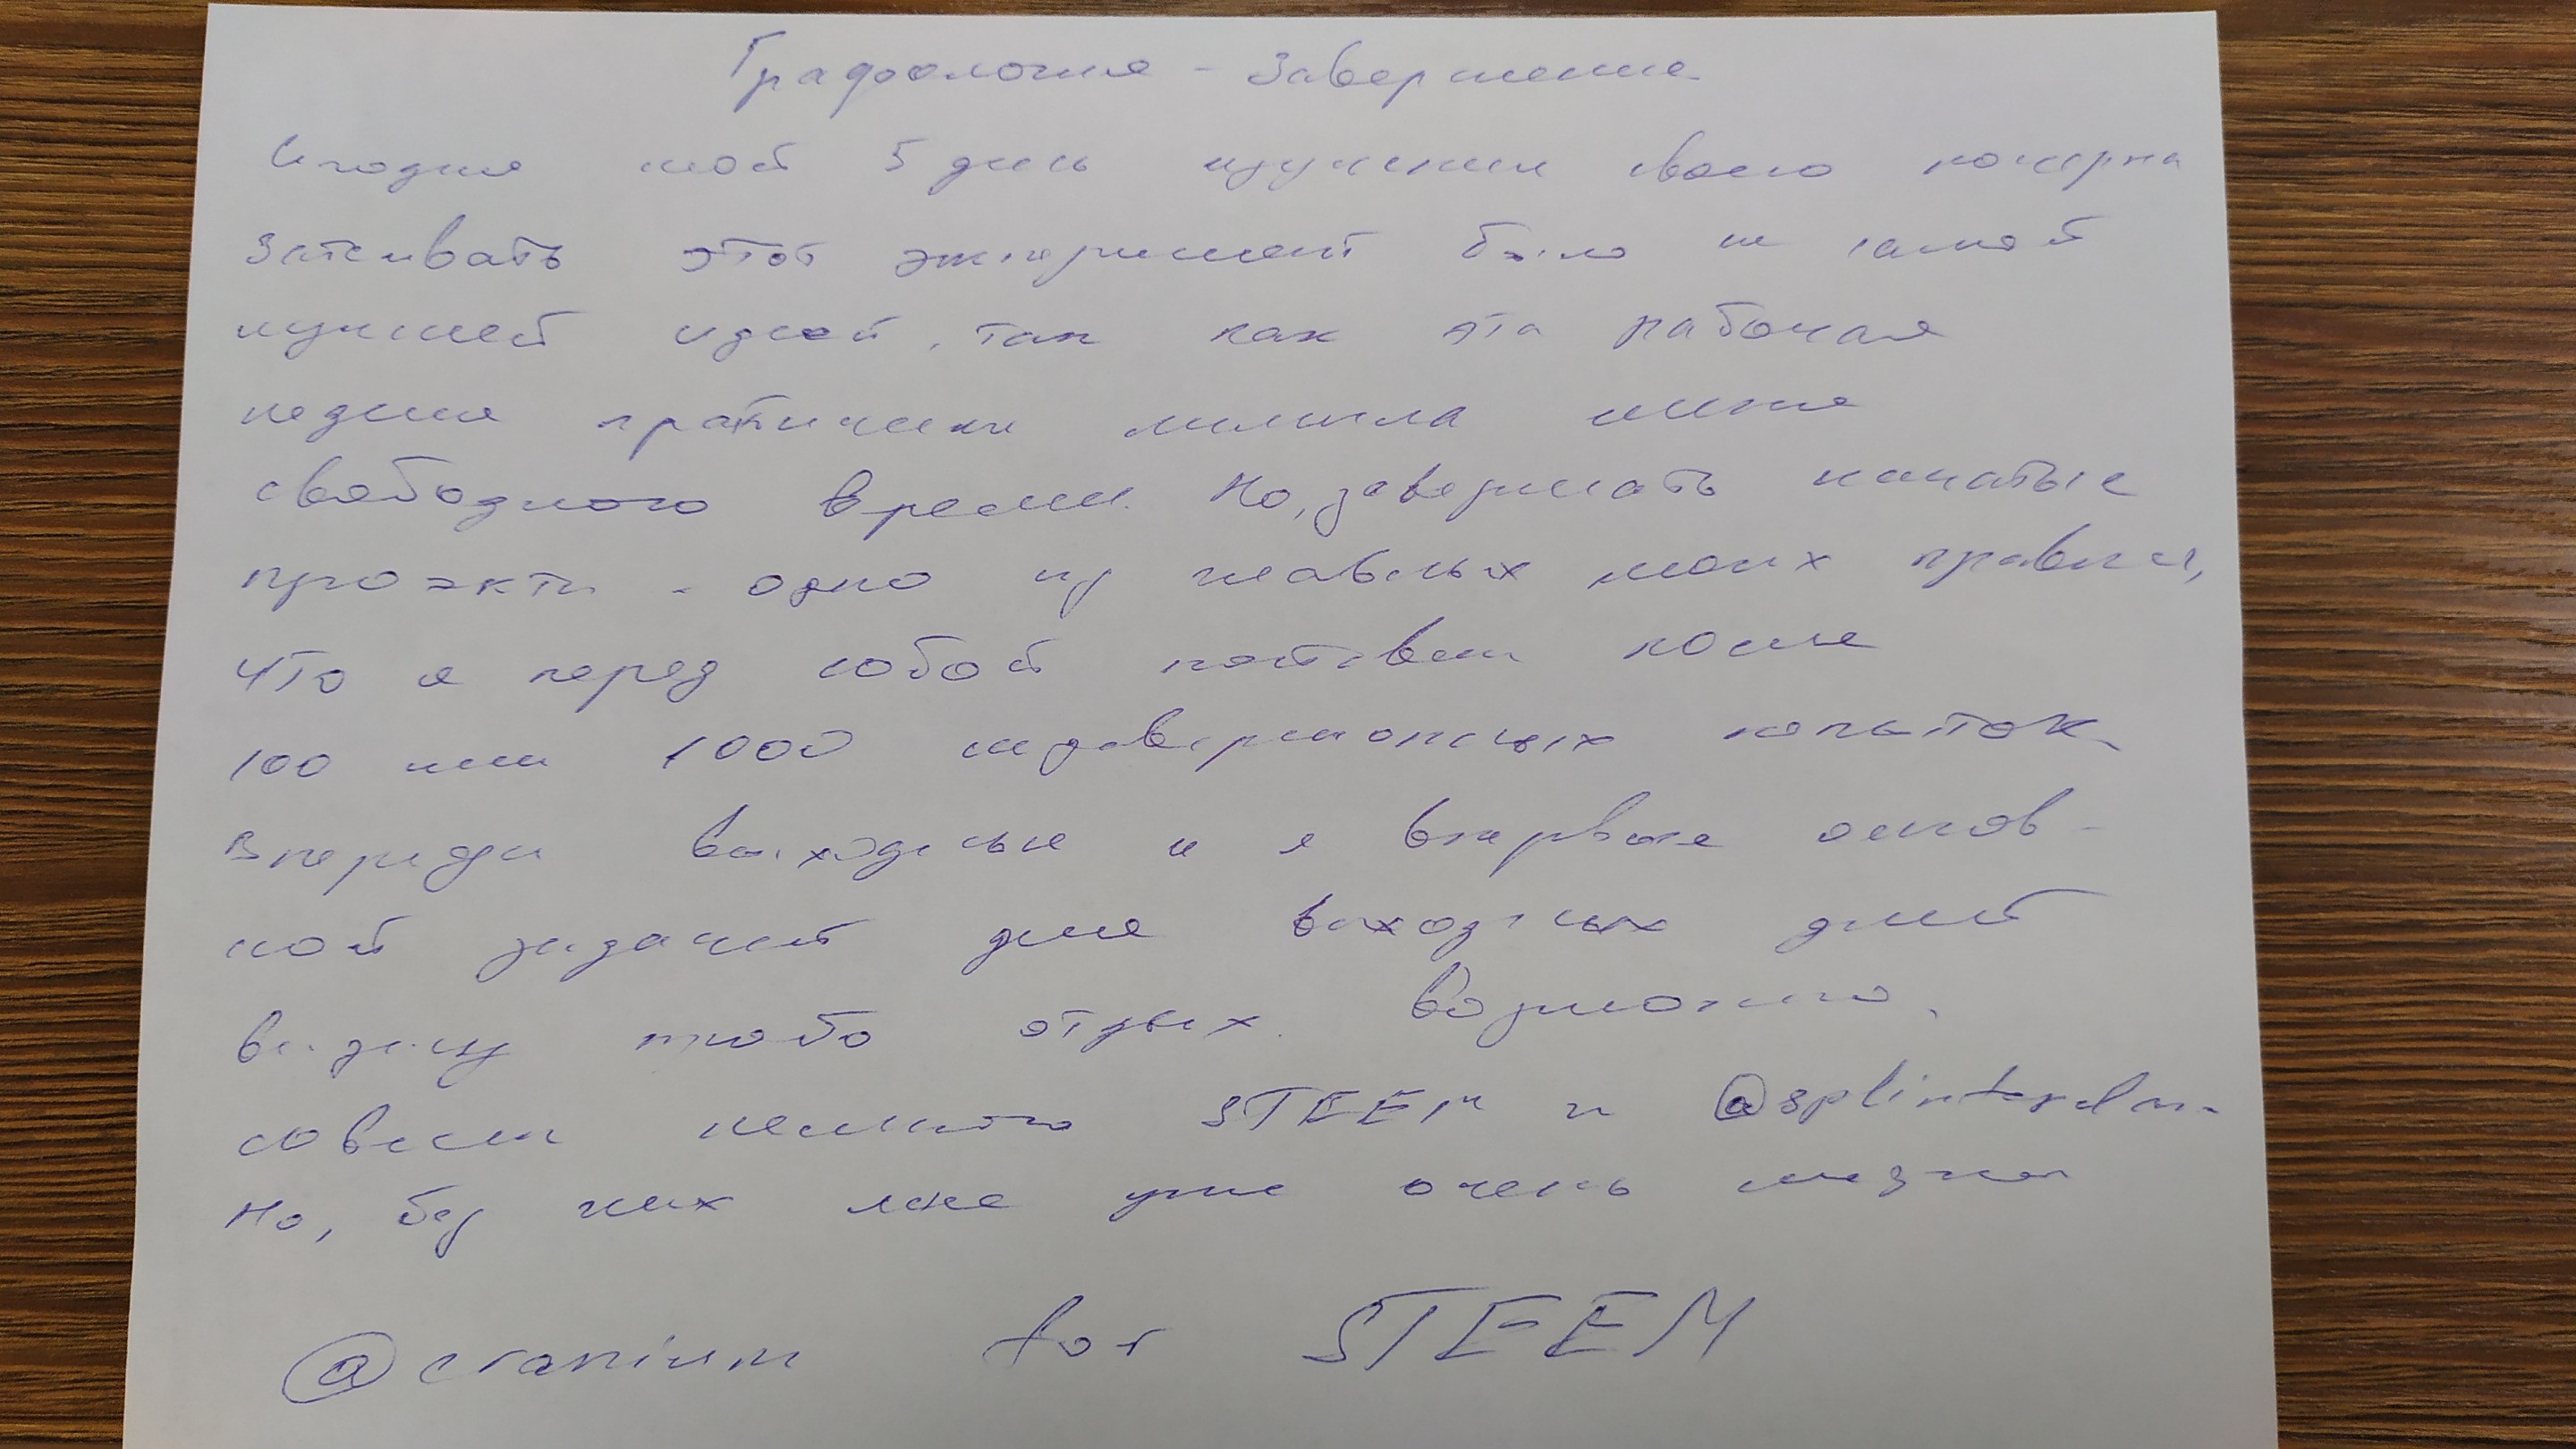 Графология - Завершение
Сегодня мой 5 день изучения своего почерка
Затеивать этот эксперимент было не самой
лучшей идеей, так как эта рабочая
неделя практически лишила меня
свободного времени. Но, завершать начатые
проэкты - одно из главных моих правил,
что я перед собой поставил после
100 или 1000 незавершонных попыток.
Впереди выходные и я впервые основ-
ной задачей для выходных дней
вижу отдых. Возможно,
совсем немного STEEM и @splinterlands
Но, без них мне уже очень
@cranium for STEEM